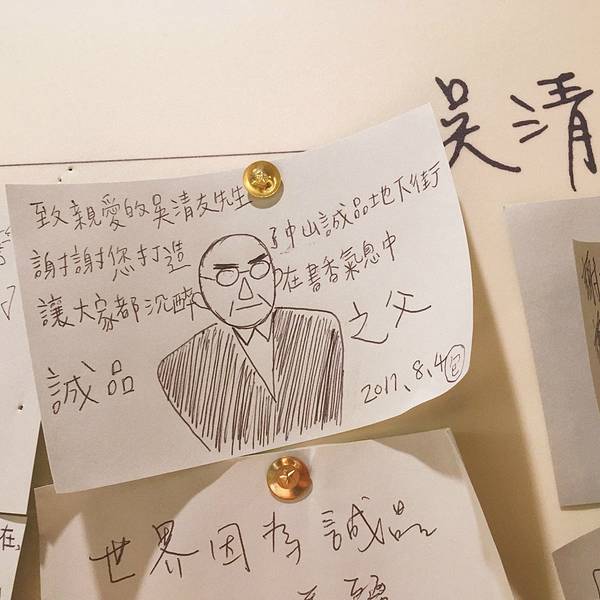 吳清
致親愛的吳清友先生
謝謝您打造了中山誠品地下街
讓大家都沉醉在書香氣息中
誠品之父
2017.8.4 包
世界因為誠品
在,